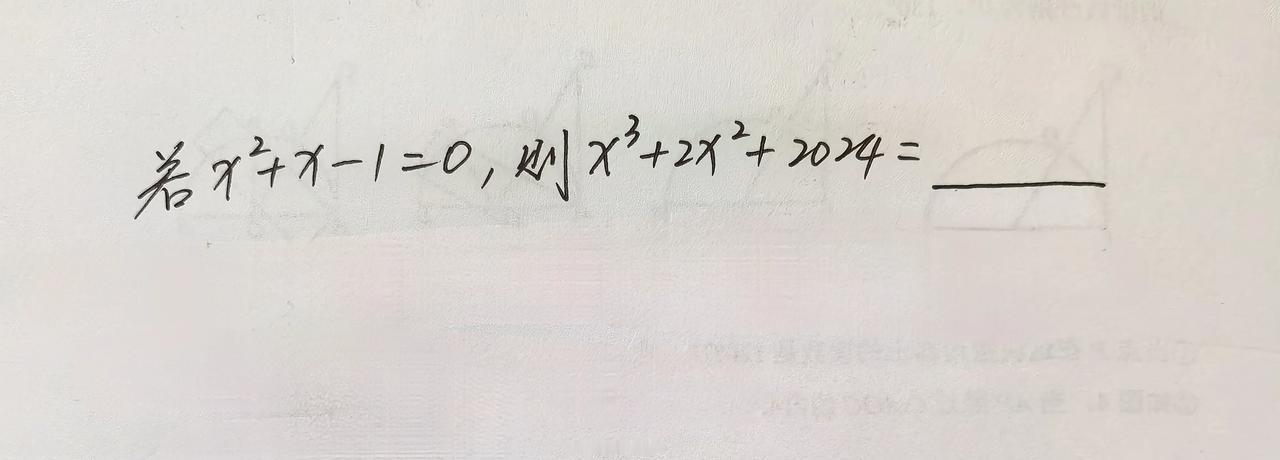 若x²+x-1=0,则x³+2x²+2024=______